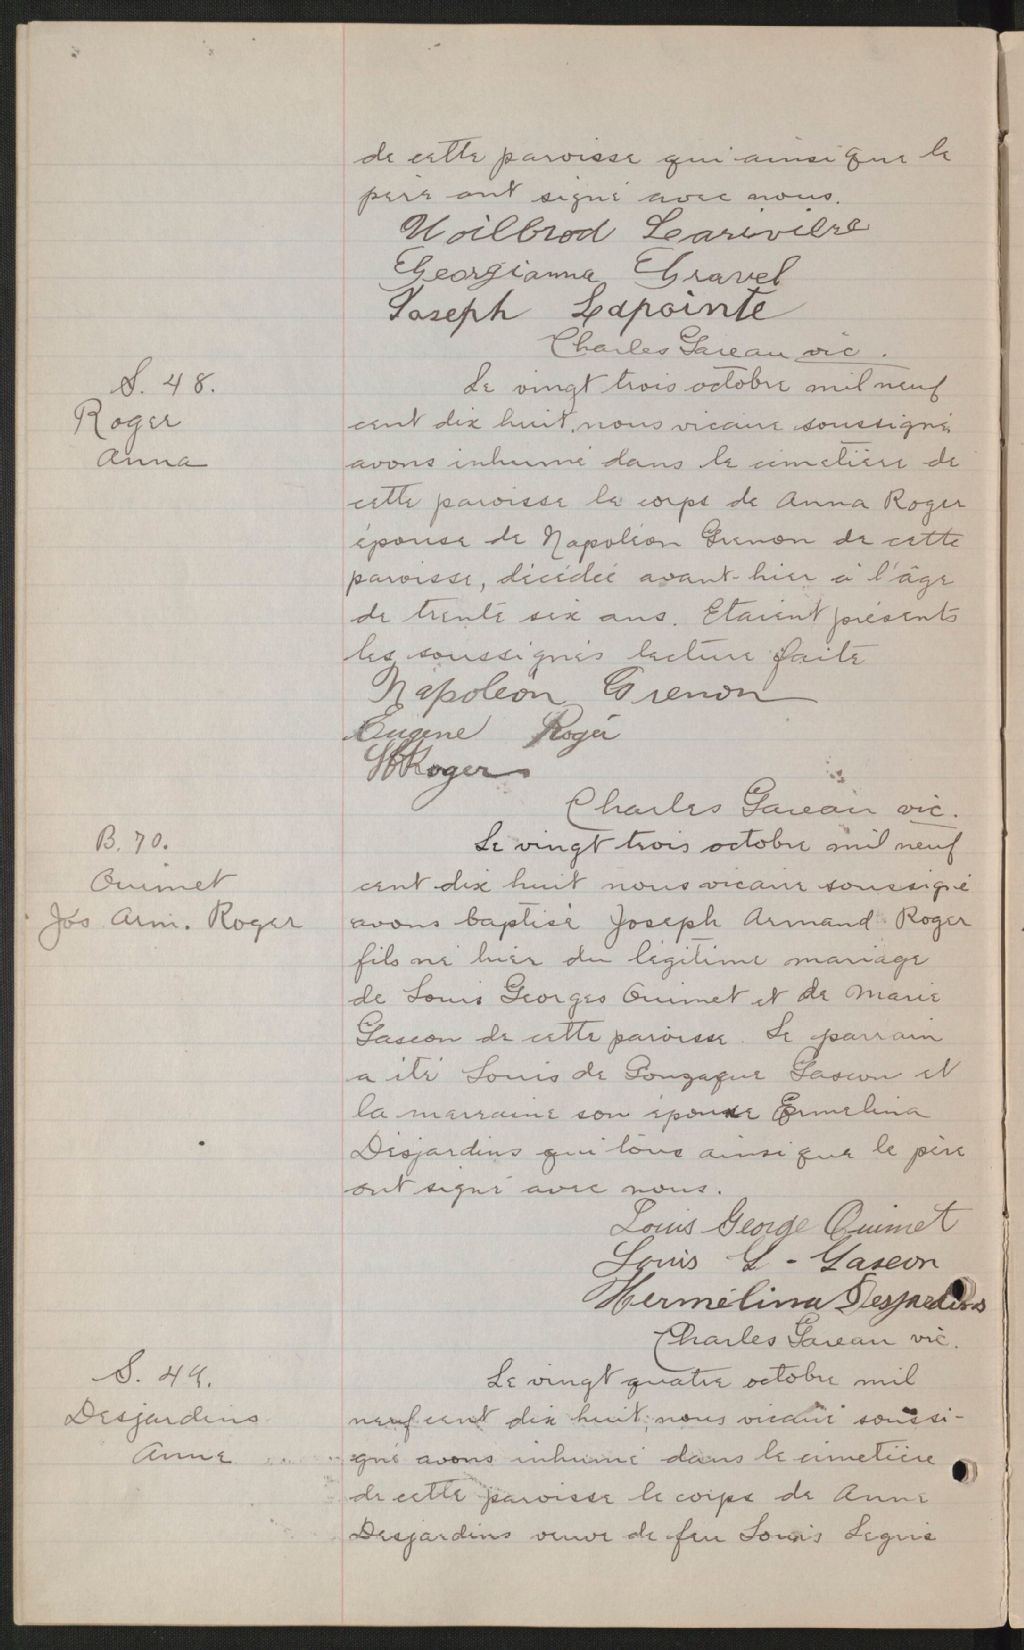 de cette paroisse qui ainsi que le
père ont signé avec nous.
Woilbrod Larivière
Georgianna Gravel
Joseph Lapointe
Charles Gareau vic.
S. 48.
Roger
Anna
Le vingt trois octobre mil neuf
cent dix huit, nous vicaire soussigné,
avons inhumé dans le cimetière de
cette paroisse le corps de Anna Roger
épouse de Napoléon Grenon de cette
paroisse, décédée avant-hier à l'âge
de trente six ans. Etaient présents
les soussignés lecture faite
Napoleon Grenon
Eugene Rogé
Roger
Charles Gareau vic.
B. 70.
Ouimet
Jos Arm. Roger
Le vingt trois octobre mil neuf
cent dix huit nous vicaire soussigné
avons baptisé Joseph Armand Roger
fils né hier du légitime mariage
de Louis Georges Ouimet et de Marie
Gascon de cette paroisse. Le parrain
a été Louis de Gonzague Gascon et
la marraine son épouse Ermelina
Desjardins qui tous ainsi que le père
ont signé avec nous.
Louis George Ouimet
Louis G - Gascon
Hermélina Desjardins
Charles Gareau vic.
S. 49.
Desjardins
Anne
Le vingt quatre octobre mil
neuf cent dix huit, nous vicaire soussi-
gné avons inhumé dans le cimetière
de cette paroisse le corps de Anne
Desjardins veuve de feu Louis